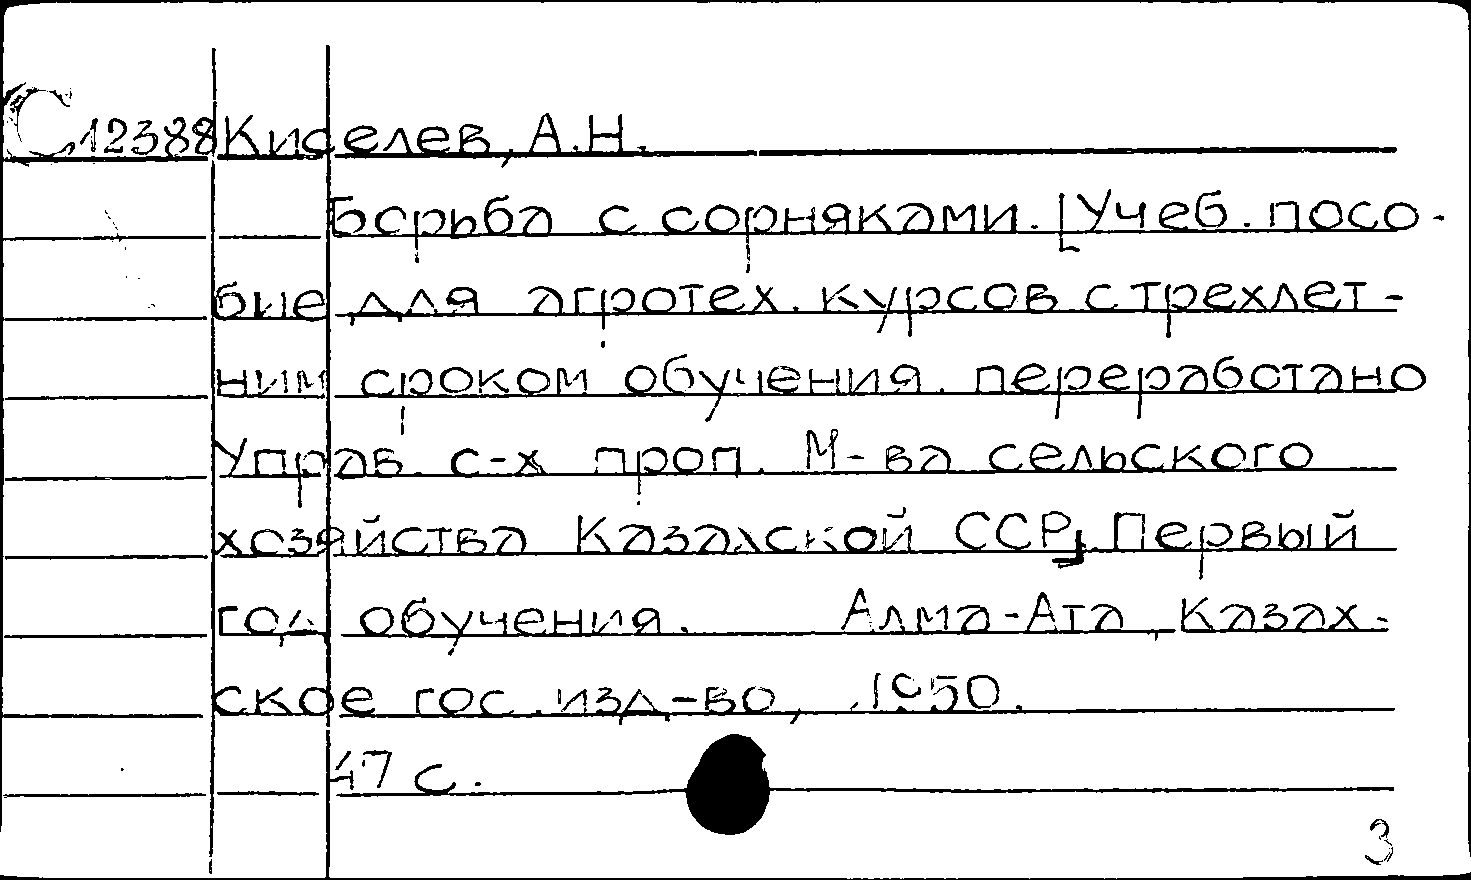 С 12388 Киселев, А.Н.
Борьба с сорняками. [Учеб. посо-
бие для агротех. курсов с трехлет-
ним сроком обучения. переработано
Управ. с-х проп. М-ва сельского
хозяйства Казахской ССР] Первый
год обучения. Алма-Ата, Казах-
ское гос. изд-во, 1950.
47 с.
3